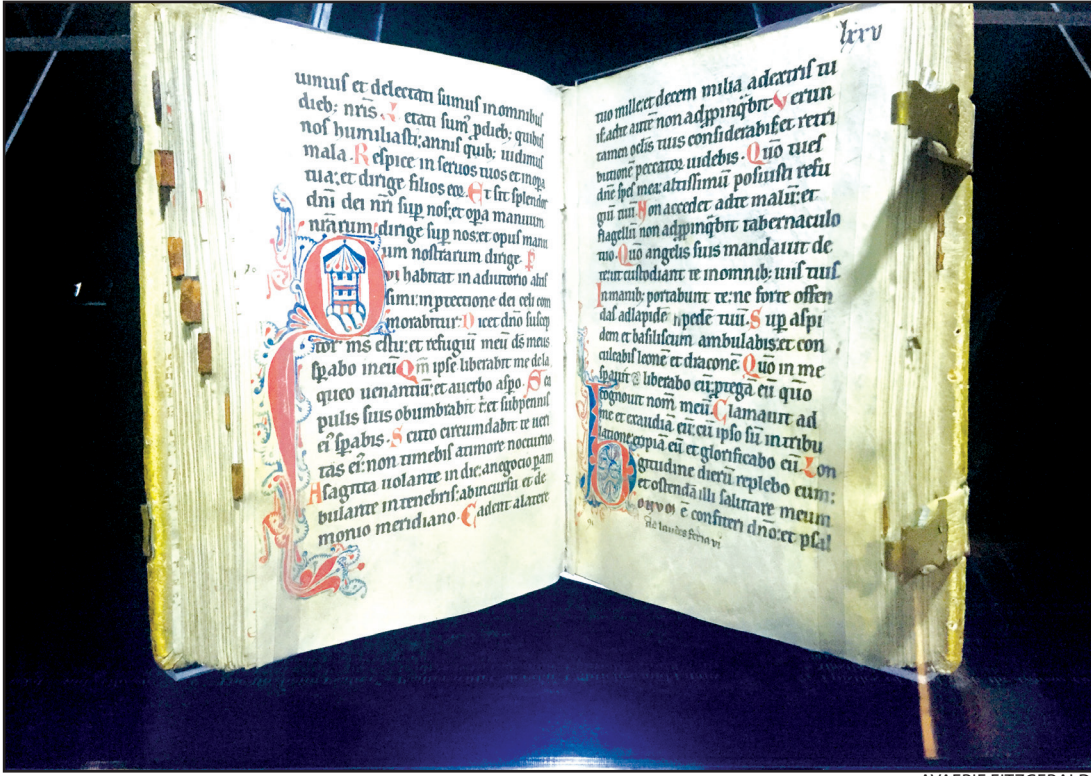 umus et delectati sumus inomnibus
dieb; nr̄is L etati sum̄ pdieb; quibus
nos humiliasti; annis quib; uidimus
mala. Respice in seruos tuos et inopa
tua; et dirige filios eoꝝ. Et sit splendor
dn̄i dei nr̄i sup nos; et opa manuum
nr̄arum dirige sup nos; et opus manu
um nostrarum dirige.
Qvi habitat in adiutorio altis
simi; in ptectione dei celi com
morabitur: Dicet dn̄o suscep
tor ms es tu; et refugiū meū d̄s meus
spabo in eū. Qm̄ ipse liberabit me de la
queo uenantiū; et auerbo aspo. Sca
pulis suis obumbrabit t; et subpennis
ei' spabis. Scuto circundabit te ueri
tas ei'; non timebis atimore nocturno
A sagitta uolante in die; anegocio pam
bulante in tenebris; abincursu et de
monio meridiano. Cadent alatere
lxxv
tuo mille; et decem milia adextris tu
is; adte autē non adppinq̄bit Verun
tamen oclis tuis considerabis; et retri
butionē peccatoꝝ uidebis. Quō tu es
dn̄e spes mea; altissimū posuisti refu
giū tuū. Non accedet adte malū; et
flagellū non adppinq̄bit tabernaculo
tuo. Quō angelis suis mandauit de
te; ut custodiant te in omnib; uiis tuis
In manib; portabunt te; ne forte offen
das adlapidē pedē tuū. Sup aspi
dem et basiliscum ambulabis; et con
culcabis leonē et draconē. Quō in me
spauit & liberabo eū; ptegā eū quō
cognouit nom̄ meū. Clamauit ad
me et exaudiā eū; cū ipso sū in tribu
latione; eripiā eū et glorificabo eū. Lon
gitudine dierū replebo eum;
et ostendā illi salutare meum
Bonum ē confiteri dn̄o; et psal
de laudes feria vi